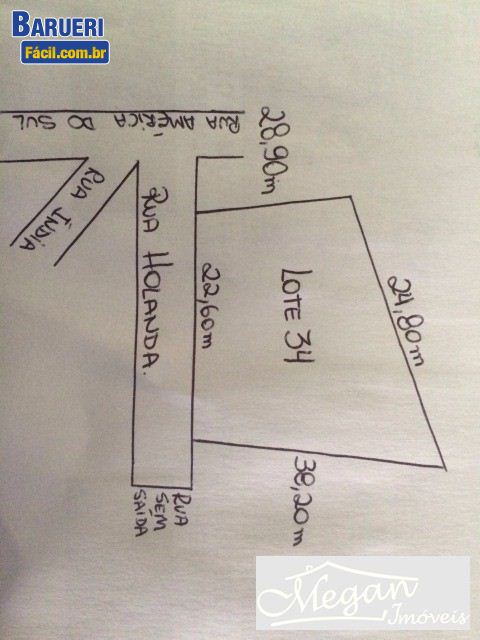 BARUERI
Fácil.com.br
RUA AMÉRICA DO SUL
28,90m
RUA ÍNDIA
RUA HOLANDA.
22,60m
LOTE 34
24,80m
38,20m
RUA
SEM
SAÍDA
Megan
Imóveis